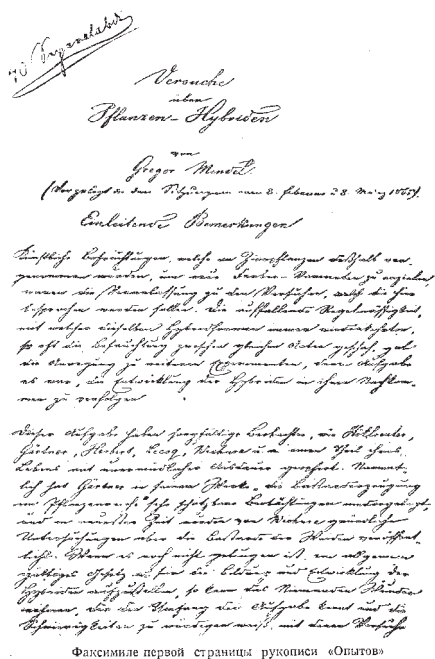 40 Separatabdr.
Versuche
über
Pflanzen-Hybriden
von
Gregor Mendel.
(Vorgelegt in den Sitzungen vom 8. Februar u 8. März 1865).
Einleitende Bemerkungen
Künstliche Befruchtungen, welche an Zierpflanzen deßhalb vor-
genommen wurden, um neue Farben-Varianten zu erzielen,
waren die Veranlassung zu den Versuchen, welche hier
besprochen werden sollen. Die auffallende Regelmäßigkeit,
mit welcher dieselben Hybridformen immer wiederkehrten,
so oft die Befruchtung zwischen gleichen Arten geschah, gab
die Anregung zu weiteren Experimenten, deren Aufgabe
es war, die Entwicklung der Hybriden in ihren Nachkom-
men zu verfolgen
Dieser Aufgabe haben sorgfältige Beobachter, wie Kölreuter,
Gärtner, Herbert, Lecoq, Wichura u. a einen Theil ihres
Lebens mit unermüdlicher Ausdauer geopfert. Nament-
lich hat Gärtner in seinem Werke „die Bastarderzeugung
im Pflanzenreiche“ sehr schätzbare Beobachtungen niedergelegt,
und in neuester Zeit wurden von Wichura gründliche
Untersuchungen über die Bastarde der Weiden veröffent-
licht. Wenn es noch nicht gelungen ist, ein allgemein
giltiges Gesetz für die Bildung und Entwicklung der
Hybriden aufzustellen, so kann das Niemanden Wunder
nehmen, der den Umfang der Aufgabe kennt und die
Schwierigkeiten zu würdigen weiß, mit denen Versuche
Факсимиле первой страницы рукописи «Опытов»